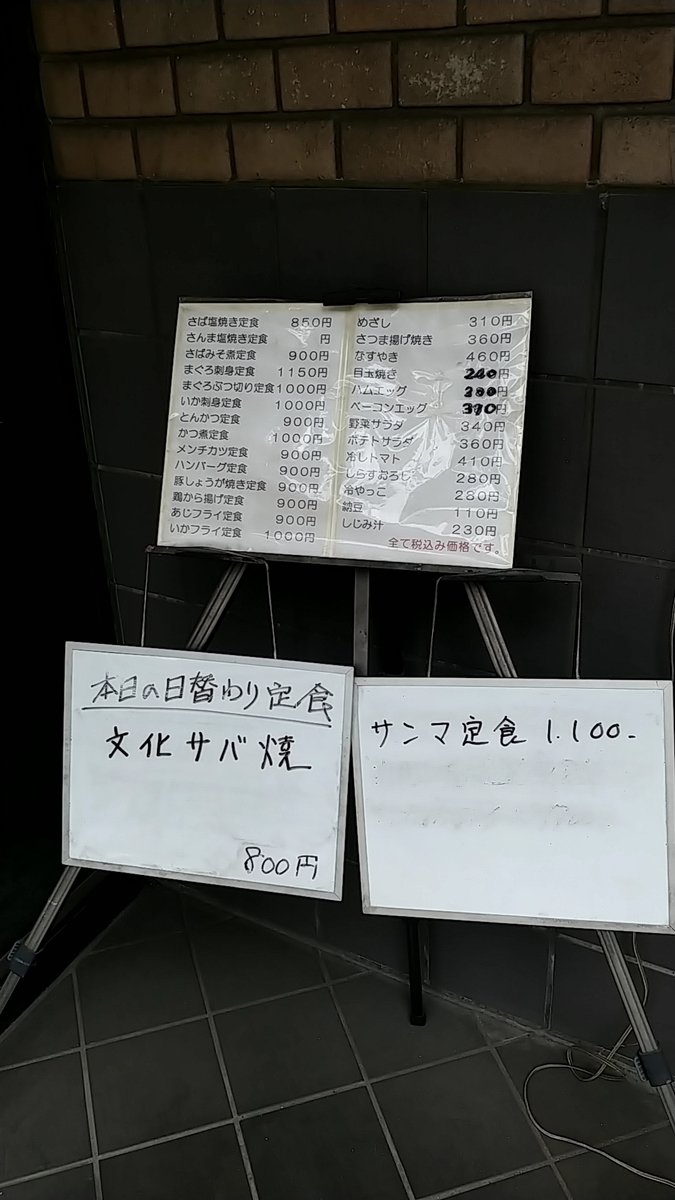 さば塩焼き定食 850円
さんま塩焼き定食 円
さばみそ煮定食 900円
まぐろ刺身定食 1150円
まぐろぶつ切り定食 1000円
いか刺身定食 1000円
とんかつ定食 900円
かつ煮定食 1000円
メンチカツ定食 900円
ハンバーグ定食 900円
豚しょうが焼き定食 900円
鶏から揚げ定食 900円
あじフライ定食 900円
いかフライ定食 1000円
めざし 310円
さつま揚げ焼き 360円
なすやき 460円
目玉焼き 240円
ハムエッグ 円
ベーコンエッグ 円
野菜サラダ 340円
ポテトサラダ 360円
冷しトマト 410円
しらすおろし 280円
冷やっこ 280円
納豆 110円
しじみ汁 230円
全て税込み価格です。
本日の日替わり定食
文化サバ焼
800円
サンマ定食 1.100-